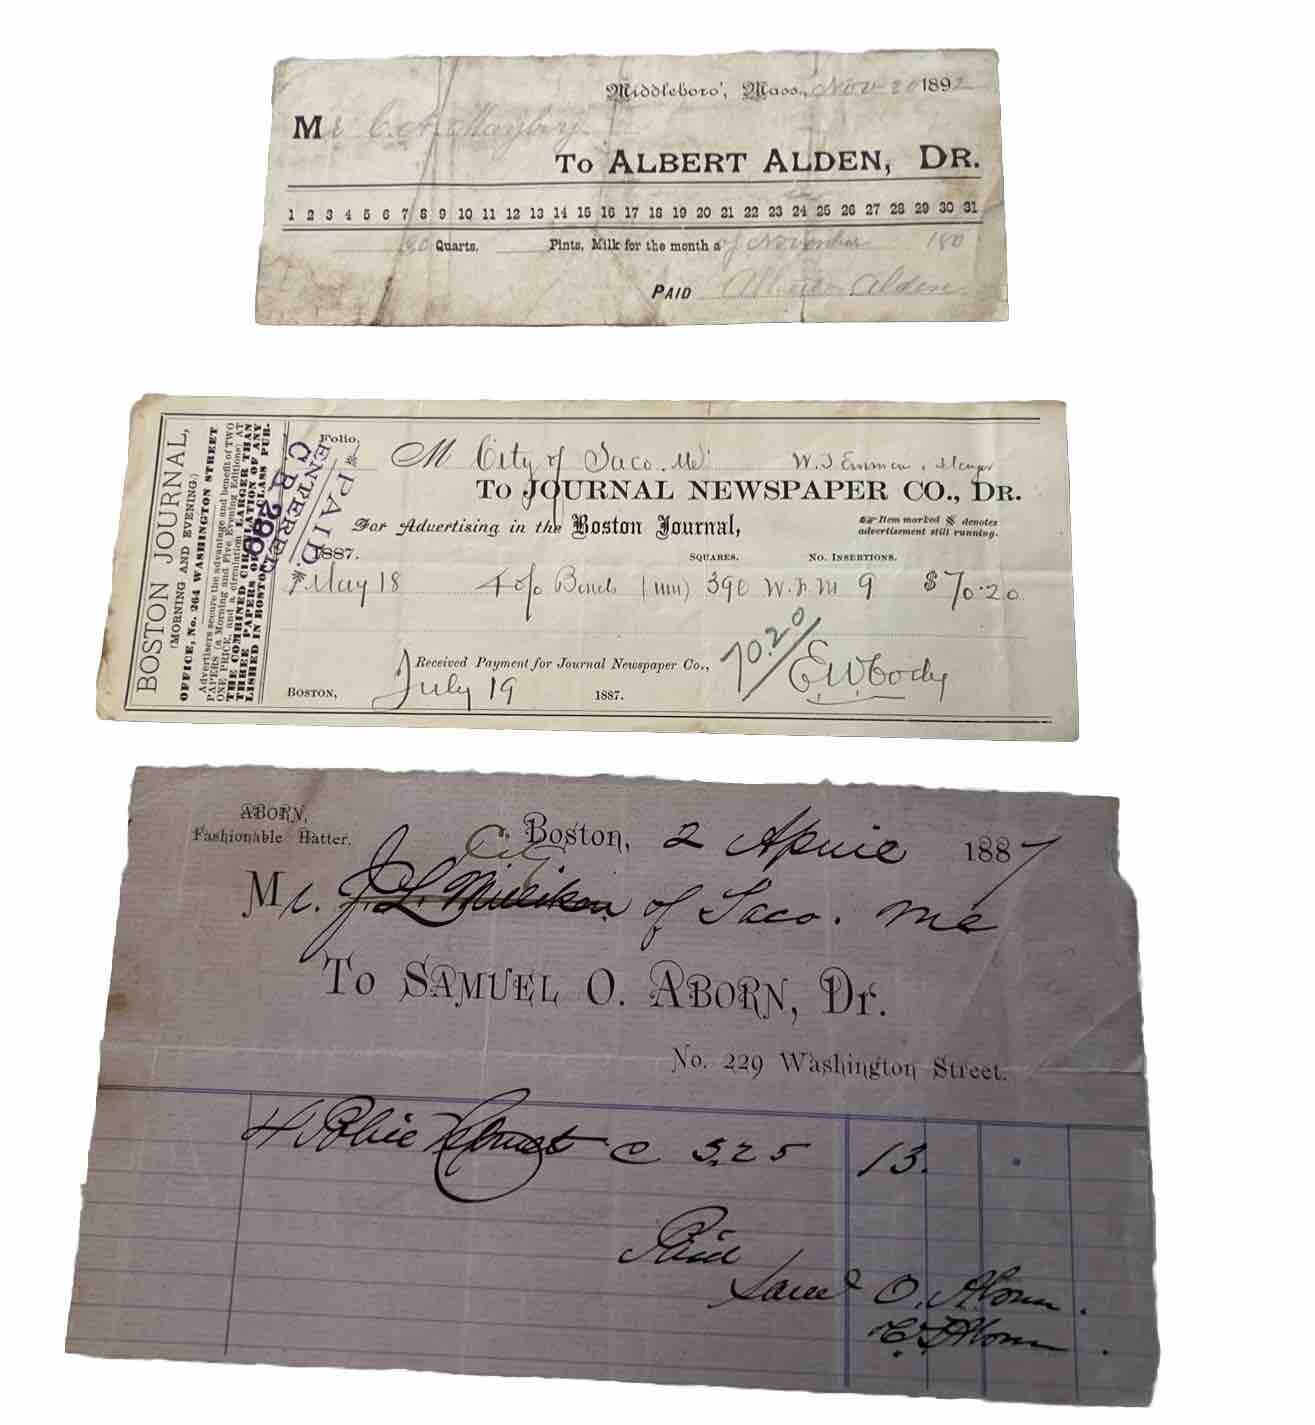 Middleboro', Mass., Nov 20 1892
Mr C. A. Maybry
To ALBERT ALDEN, DR.
1 2 3 4 5 6 7 8 9 10 11 12 13 14 15 16 17 18 19 20 21 22 23 24 25 26 27 28 29 30 31
30 Quarts, Pints, Milk for the month of November 180
PAID Alden
BOSTON JOURNAL,
(MORNING AND EVENING.)
OFFICE, No. 264 WASHINGTON STREET
Advertisers secure the advantage and benefit of TWO
PAPERS (a Morning and Five Evening Editions) AT
ONE PRICE, and a circulation LARGER THAN
THE COMBINED CIRCULATION OF ANY
THREE PAPERS OF CLASS PUB-
LISHED IN BOSTON
ENTERED
C. B. 280
PAID.
Folio,
M City of Saco. Me. W. J.
To JOURNAL NEWSPAPER CO., DR.
For Advertising in the Boston Journal,
Item marked § denotes
advertisement still running.
1887.
SQUARES. No. INSERTIONS.
May 18 4 o/o Bonds 390 W.F.M 9 $70.20
Received Payment for Journal Newspaper Co.,
70.20/ E W Cody
BOSTON, July 19 1887.
ABORN,
Fashionable Hatter.
Boston, 2 April 1887
City
Mr. J. L. Milliken of Saco. Me
To SAMUEL O. ABORN, Dr.
No. 229 Washington Street.
4 Police Helmet @ 3.25 13.
Paid
Saml O. Aborn.